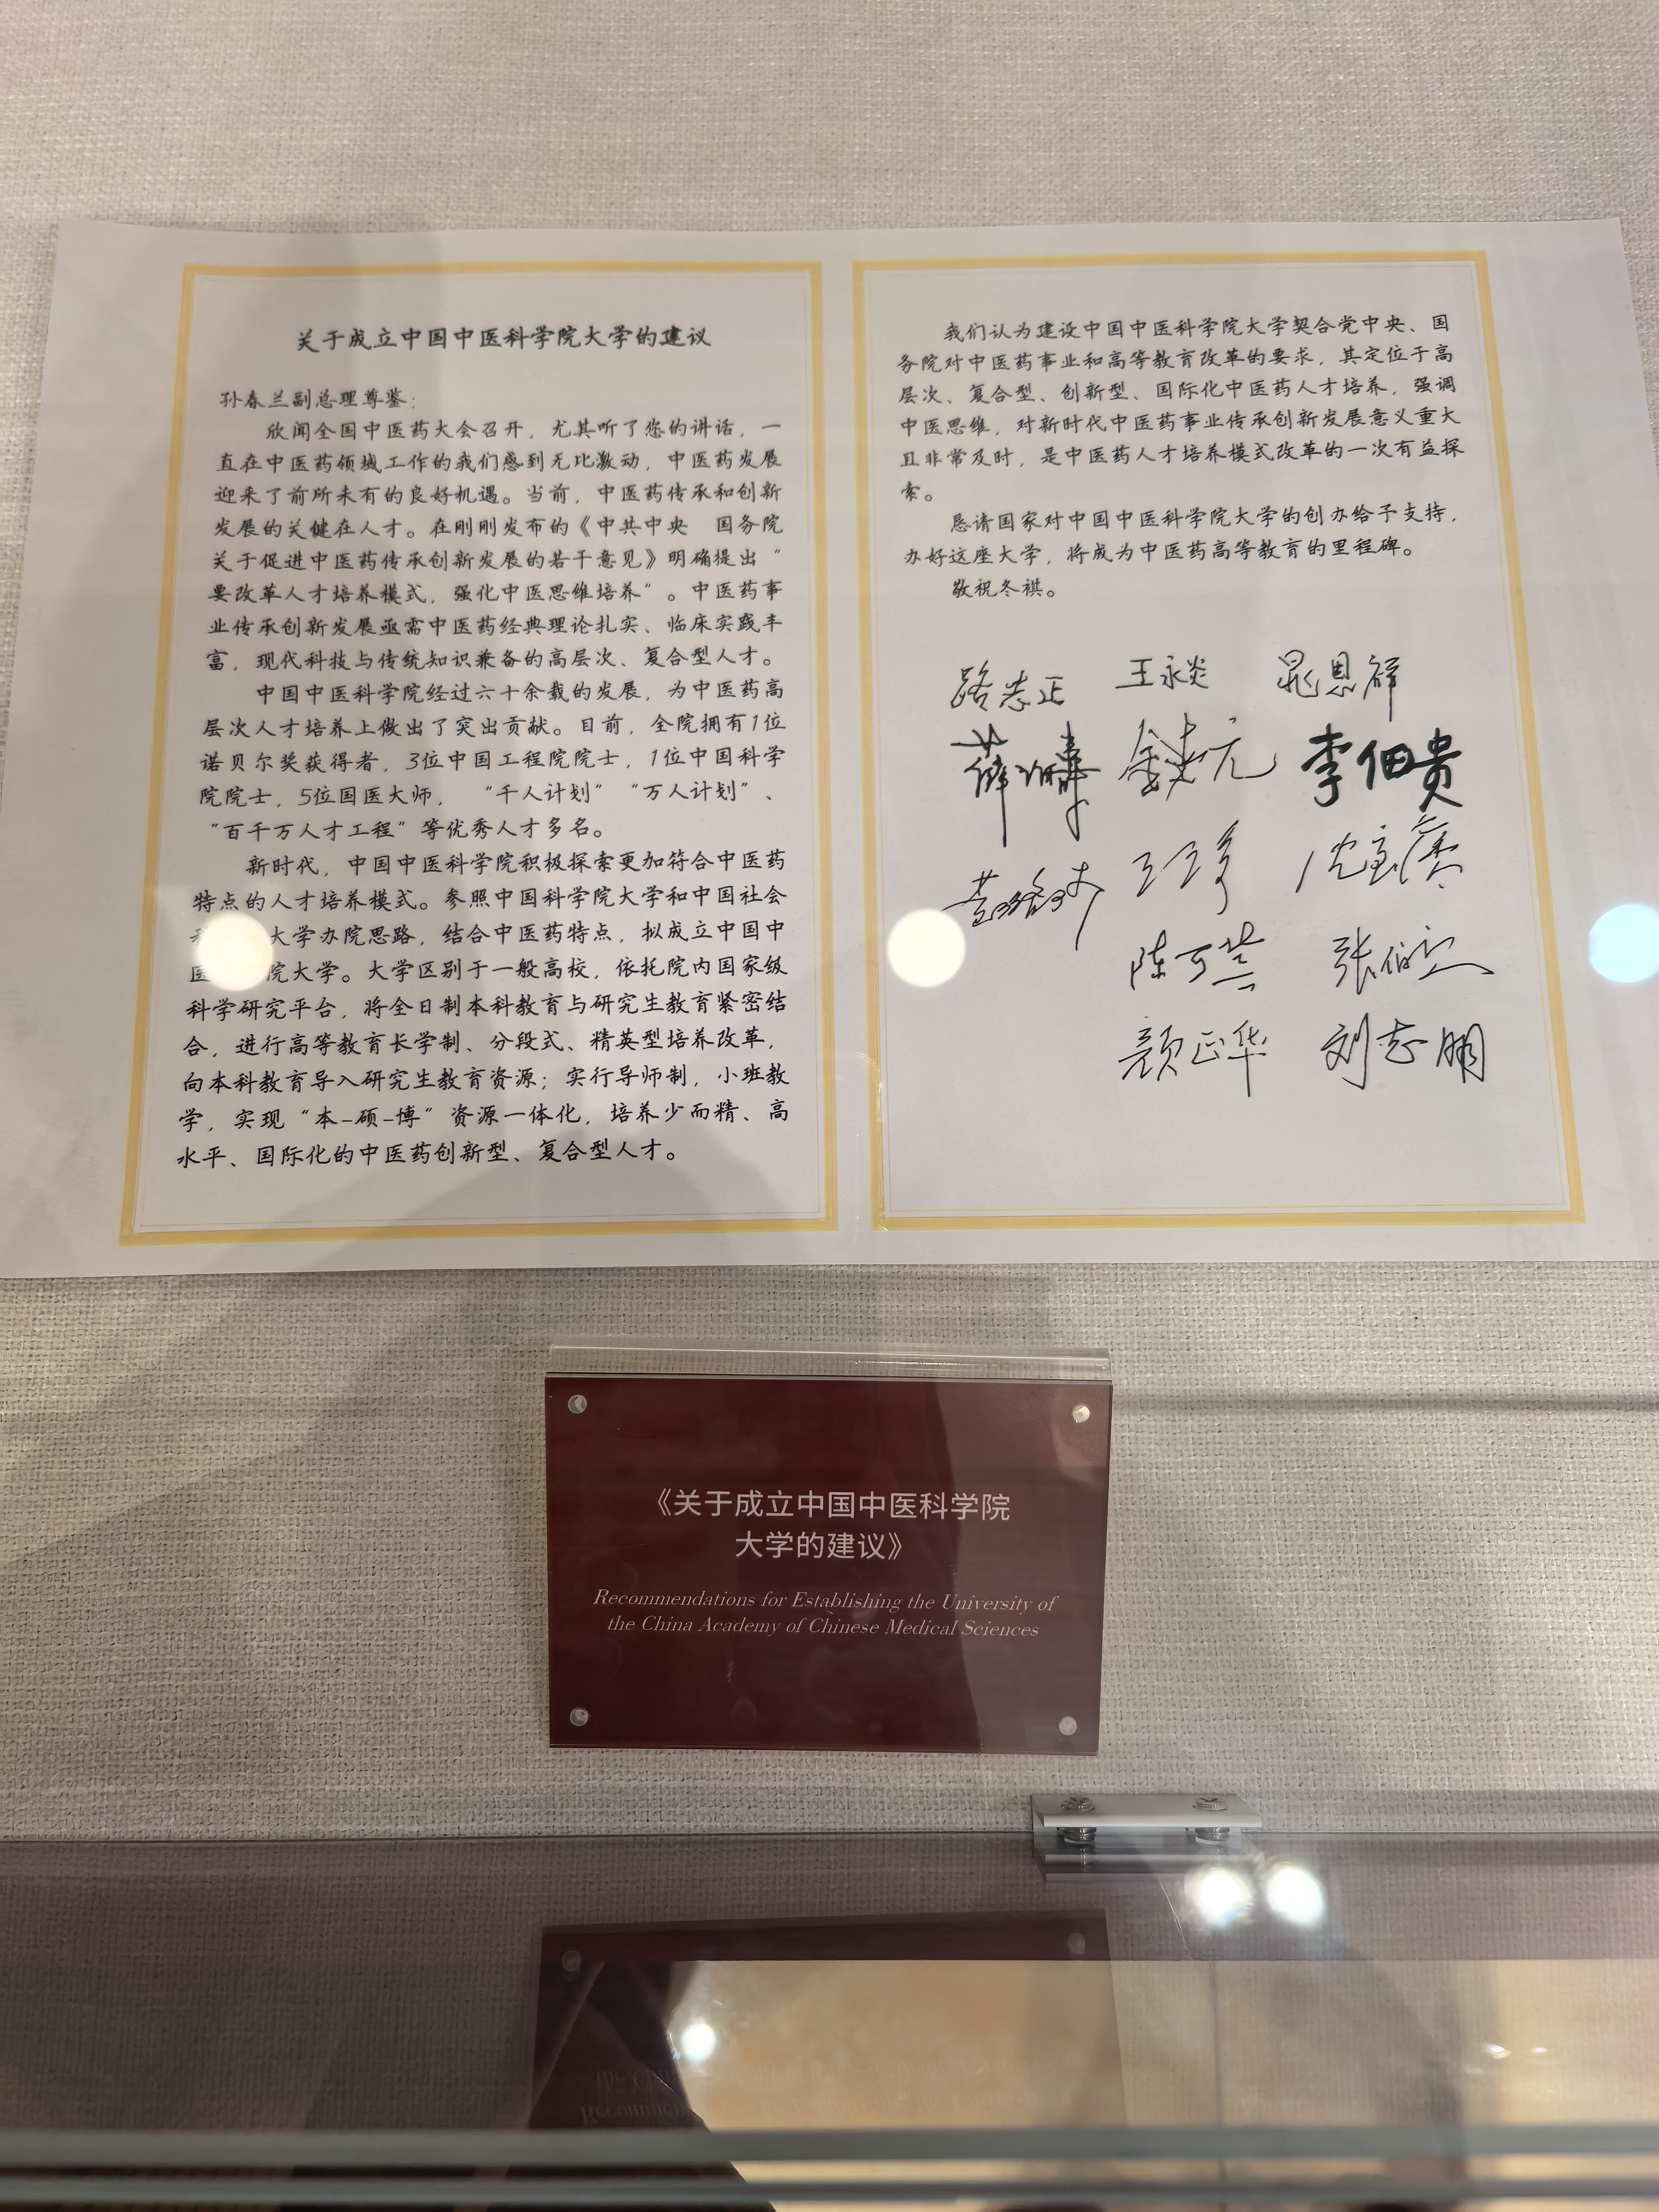 关于成立中国中医科学院大学的建议
孙春兰副总理尊鉴：
欣闻全国中医药大会召开，尤其听了您的讲话，一
直在中医药领域工作的我们感到无比激动，中医药发展
迎来了前所未有的良好机遇。当前，中医药传承和创新
发展的关键在人才。在刚刚发布的《中共中央　国务院
关于促进中医药传承创新发展的若干意见》明确提出“
要改革人才培养模式，强化中医思维培养”。中医药事
业传承创新发展亟需中医药经典理论扎实、临床实践丰
富，现代科技与传统知识兼备的高层次、复合型人才。
中国中医科学院经过六十余载的发展，为中医药高
层次人才培养上做出了突出贡献。目前，全院拥有1位
诺贝尔奖获得者，3位中国工程院院士，1位中国科学
院院士，5位国医大师，“千人计划”“万人计划”、
“百千万人才工程”等优秀人才多名。
新时代，中国中医科学院积极探索更加符合中医药
特点的人才培养模式。参照中国科学院大学和中国社会
大学办院思路，结合中医药特点，拟成立中国中
医院大学。大学区别于一般高校，依托院内国家级
科学研究平台，将全日制本科教育与研究生教育紧密结
合，进行高等教育长学制、分段式、精英型培养改革，
向本科教育导入研究生教育资源；实行导师制，小班教
学，实现“本-硕-博”资源一体化，培养少而精、高
水平、国际化的中医药创新型、复合型人才。
我们认为建设中国中医科学院大学契合党中央、国
务院对中医药事业和高等教育改革的要求，其定位于高
层次、复合型、创新型、国际化中医药人才培养，强调
中医思维，对新时代中医药事业传承创新发展意义重大
且非常及时，是中医药人才培养模式改革的一次有益探
索。
恳请国家对中国中医科学院大学的创办给予支持，
办好这座大学，将成为中医药高等教育的里程碑。
敬祝冬祺。
路志正 王永炎 晁恩祥
薛伯寿 金世元 李佃贵
黄璐琦 沈宝藩
陈可冀 张伯礼
颜正华 刘志明
《关于成立中国中医科学院
大学的建议》
Recommendations for Establishing the University of
the China Academy of Chinese Medical Sciences